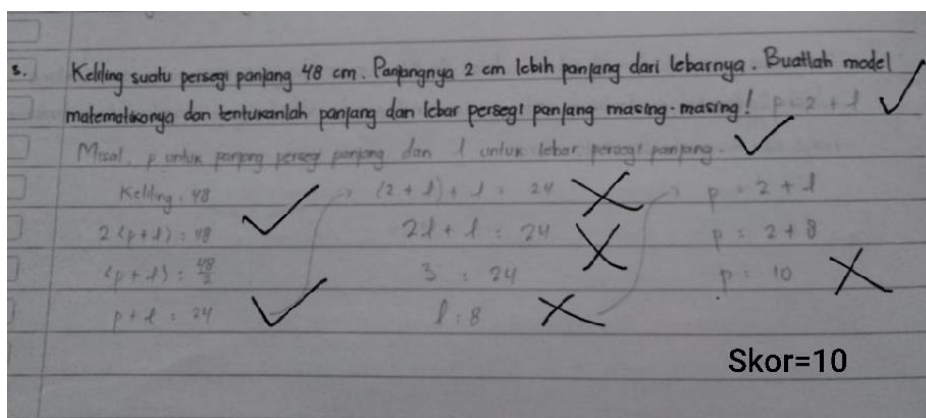 5. Keliling suatu persegi panjang 48 cm. Panjangnya 2 cm lebih panjang dari lebarnya. Buatlah model
matematikanya dan tentukanlah panjang dan lebar persegi panjang masing-masing! p = 2 + l
Misal, p untuk panjang persegi panjang dan l untuk lebar persegi panjang.
Keliling = 48
2 (p+l) = 48
(p+l) = 48/2
p + l = 24
(2 + l) + l = 24
2l + l = 24
3 = 24
l = 8
p = 2 + l
p = 2 + 8
p = 10
Skor=10